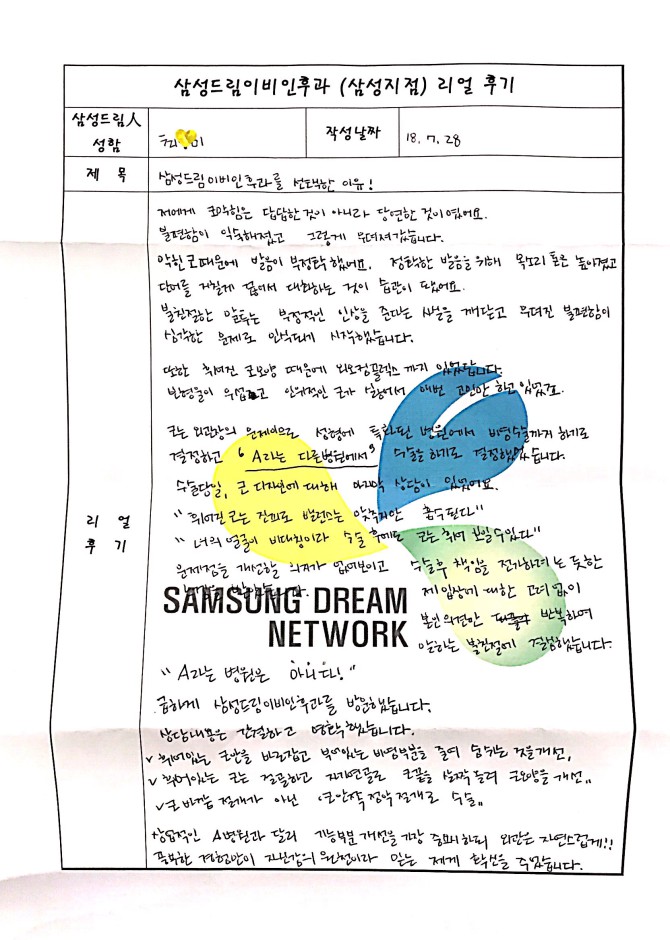 삼성드림이비인후과 (삼성지점) 리얼 후기
삼성드림人 성함
작성날짜
18. 7. 28
제 목
삼성드림이비인후과를 선택한 이유!
리 얼 후 기
저에게 코막힘은 답답한것이 아니라 당연한 것이었어요.
불편함이 익숙해졌고 그렇게 무뎌져갔습니다.
막힌 코때문에 발음이 부정확 했어요. 정확한 발음을 위해 목소리 톤은 높아졌고
단어를 거칠게 끊어서 대화하는 것이 습관이 됐어요.
불친절한 말투는 부정적인 인상을 준다는 사실을 깨닫고 무뎌진 불편함이
심각한 문제로 인식되게 시작했습니다.
또한 휘어진 코모양 때문에 외모컴플렉스 까지 있었답니다.
인위적인 코가 싫어서 매번 고민만 하고 있었죠.
코는 외관상의 문제이므로 성형에 특화된 병원에서 비염수술까지 하기로
결정하고 "A라는 다른병원에서" 수술을 하기로 결정했었습니다.
수술당일, 코 디자인에 대해 마지막 상담이 있었어요.
"휘어진 코는 진피로 밸런스는 맞추지만 흡수된다"
"너의 얼굴이 비대칭이라 수술 후에도 코는 휘어 보일수있다"
문제점을 개선할 의지가 없어보이고 수술후 책임을 전가하려 는 듯한
제 입장에 대한 고려 없이
본인 의견만 반복하여
말하는 불친절에 결정했습니다.
SAMSUNG DREAM
NETWORK
"A라는 병원은 아니다!"
급하게 삼성드림이비인후과를 방문했습니다.
상담내용은 간결하고 명확했습니다.
✓ 휘어있는 코안을 바로잡고 부어있는 비염부분을 줄여 숨쉬는 것을개선,
✓ 휘어있는 코는 절골하고 자가연골로 코끝을 살짝 올려 코모양을 개선,,
✓ 코 바깥 절개가 아닌 '코안쪽 절개로 수술,,
상업적인 A병원과 달리 기능부분 개선을 가장 중요시하되 외관은 자연스럽게!!
풍부한 경험만이 자신감의 원천이라 믿는 제게 확신을 주었습니다.